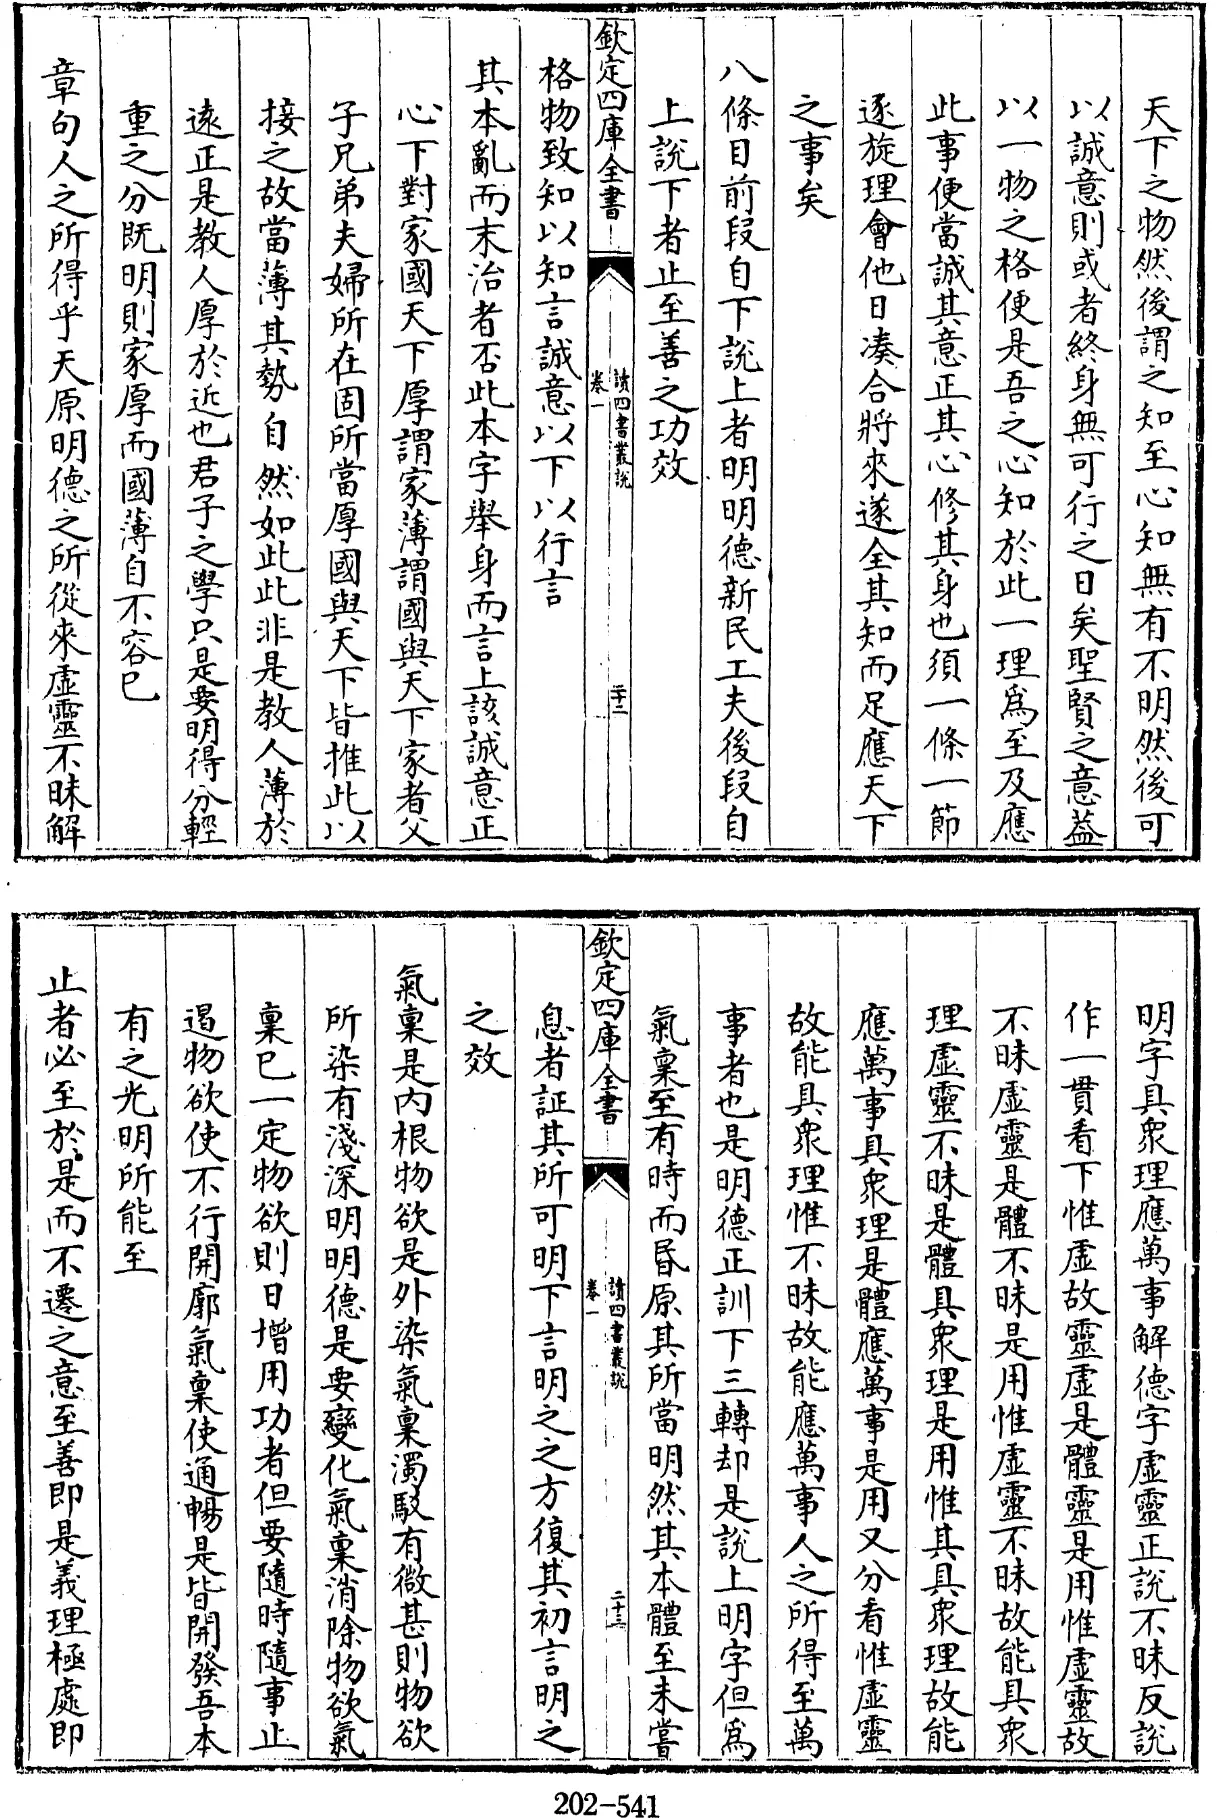 天下之物然後謂之知至心知無有不明然後可
以誠意則或者終身無可行之日矣聖賢之意蓋
以一物之格便是吾之心知於此一理為至及應
此事便當誠其意正其心修其身也須一條一節
逐旋理會他日湊合將來遂全其知而足應天下
之事矣
八條目前段自下說上者明明德新民工夫後段自
上說下者止至善之功效
欽定四庫全書
讀四書叢說
卷一
二十二
格物致知以知言誠意以下以行言
其本亂而末治者否此本字舉身而言上該誠意正
心下對家國天下厚謂家薄謂國與天下家者父
子兄弟夫婦所在固所當厚國與天下皆推此以
接之故當薄其勢自然如此此非是教人薄於
遠正是教人厚於近也君子之學只是要明得分輕
重之分既明則家厚而國薄自不容已
章句人之所得乎天原明德之所從來虛靈不昧解
明字具衆理應萬事解德字虛靈正說不昧反說
作一貫看下惟虛故靈虛是體靈是用惟虛靈故
不昧虛靈是體不昧是用惟虛靈不昧故能具衆
理虛靈不昧是體具衆理是用惟其具衆理故能
應萬事具衆理是體應萬事是用又分看惟虛靈
故能具衆理惟不昧故能應萬事人之所得至萬
事者也是明德正訓下三轉却是說上明字但為
氣稟至有時而昏原其所當明然其本體至未嘗
欽定四庫全書
讀四書叢說
卷一
二十三
息者証其所可明下言明之之方復其初言明之
之效
氣稟是内根物欲是外染氣稟濁駁有微甚則物欲
所染有淺深明明德是要變化氣稟消除物欲氣
稟已一定物欲則日增用功者但要隨時隨事止
遏物欲使不行開廓氣稟使通暢是皆開發吾本
有之光明所能至
止者必至於是而不遷之意至善即是義理極處即
202-541